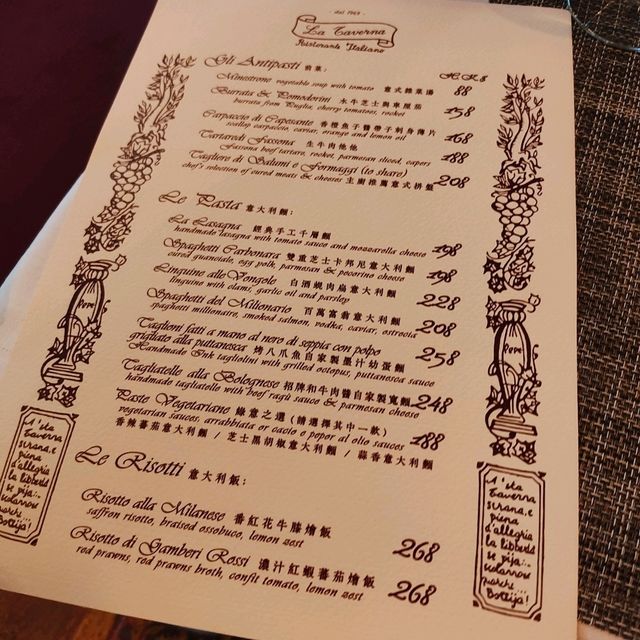 - dal 1969 -
La Taverna
Ristorante Italiano
H.K.$
Gli Antipasti 前菜:
Minestrone vegetable soup with tomato 意式雜菜湯 88
Burrata & Pomodorini 水牛芝士與車厘茄 158
burrata from Puglia, cherry tomatoes, rocket
Carpaccio di Capesante 香橙魚子醬帶子刺身薄片 168
scallop carpaccio, caviar, orange and lemon oil
Tartaredi Fassona 生牛肉他他 188
Fassona beef tartare, rocket, parmesan sliced, capers
Tagliere di Salumi e Formaggi (to share) 208
chef's selection of cured meats & cheeses 主廚推薦意式拼盤
Le Pasta 意大利麵:
La Lasagna 經典手工千層麵 198
handmade lasagna with tomato sauce and mozzarella cheese
Spaghetti Carbonara 雙重芝士卡邦尼意大利麵 198
cured guanciale, egg yolk, parmesan & pecorino cheese
Linguine alle Vongole 白酒蜆肉扁意大利麵 228
linguine with clams, garlic oil and parsley
Spaghetti del Milionario 百萬富翁意大利麵 208
spaghetti millionaire, smoked salmon, vodka, caviar, ostrocia
Taglioni fatti a mano al nero di seppia con polpo 258
grigliato alla puttanesca 烤八爪魚自家製墨汁幼蛋麵
Handmade Ink tagliolini with grilled octopus, puttanesca sauce
Tagliatelle alla Bolognese 招牌和牛肉醬自家製寬麵 248
handmade tagliatelle with beef ragù sauce & parmesan cheese
Paste Vegetariano 綠意之選 (請選擇其中一款) 188
vegetarian sauces, arrabbiata or cacio e pepor al olio sauces
香辣蕃茄意大利麵 / 芝士黑胡椒意大利麵 / 蒜香意大利麵
Le Risotti 意大利飯:
Risotto alla Milanese 番紅花牛膝燴飯 268
saffron risotto, braised ossobuco, lemon zest
Risotto di Gamberi Rossi 濃汁紅蝦蕃茄燴飯 268
red prawns, red prawns broth, confit tomato, lemon zest
A 'sta
Taverna
serana, e
piena
d'allegria
la libbertà
se pija..
Bottija!
A 'sta
Taverna
serana, e
piena
d'allegria
la libbertà
se pija..
Bottija!